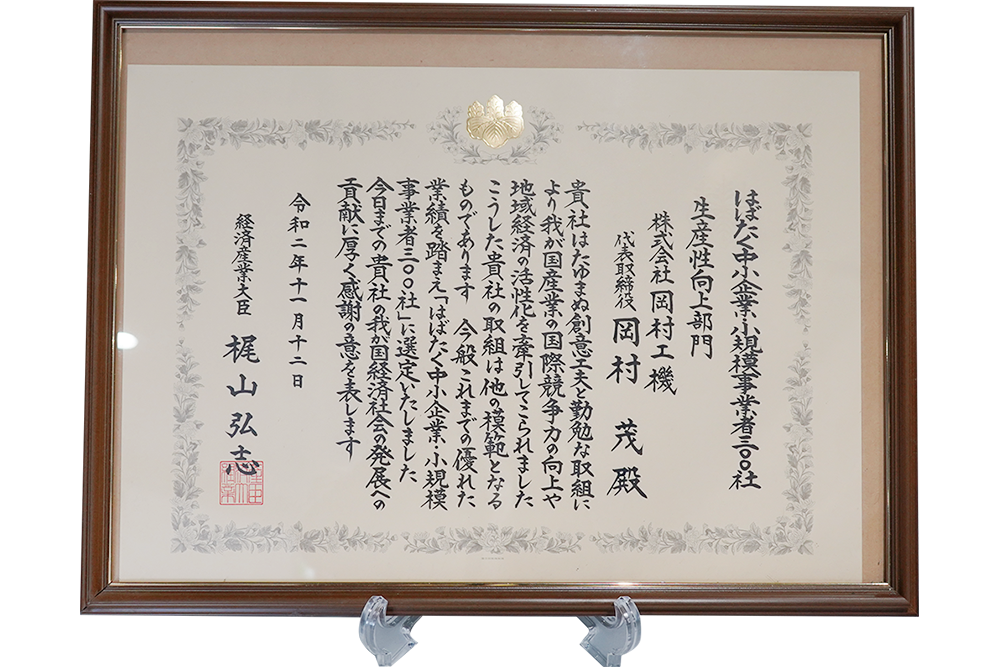 はばたく中小企業・小規模事業者三〇〇社
生産性向上部門
株式会社 岡村工機
代表取締役 岡村 茂 殿
貴社はたゆまぬ創意工夫と勤勉な取組に
より我が国産業の国際競争力の向上や
地域経済の活性化を牽引してこられました
こうした貴社の取組は他の模範となる
ものであります 今般これまでの優れた
業績を踏まえ「はばたく中小企業・小規模
事業者三〇〇社」に選定いたしました
今日までの貴社の我が国経済社会の発展への
貢献に厚く感謝の意を表します
令和二年十一月十二日
経済産業大臣 梶山弘志